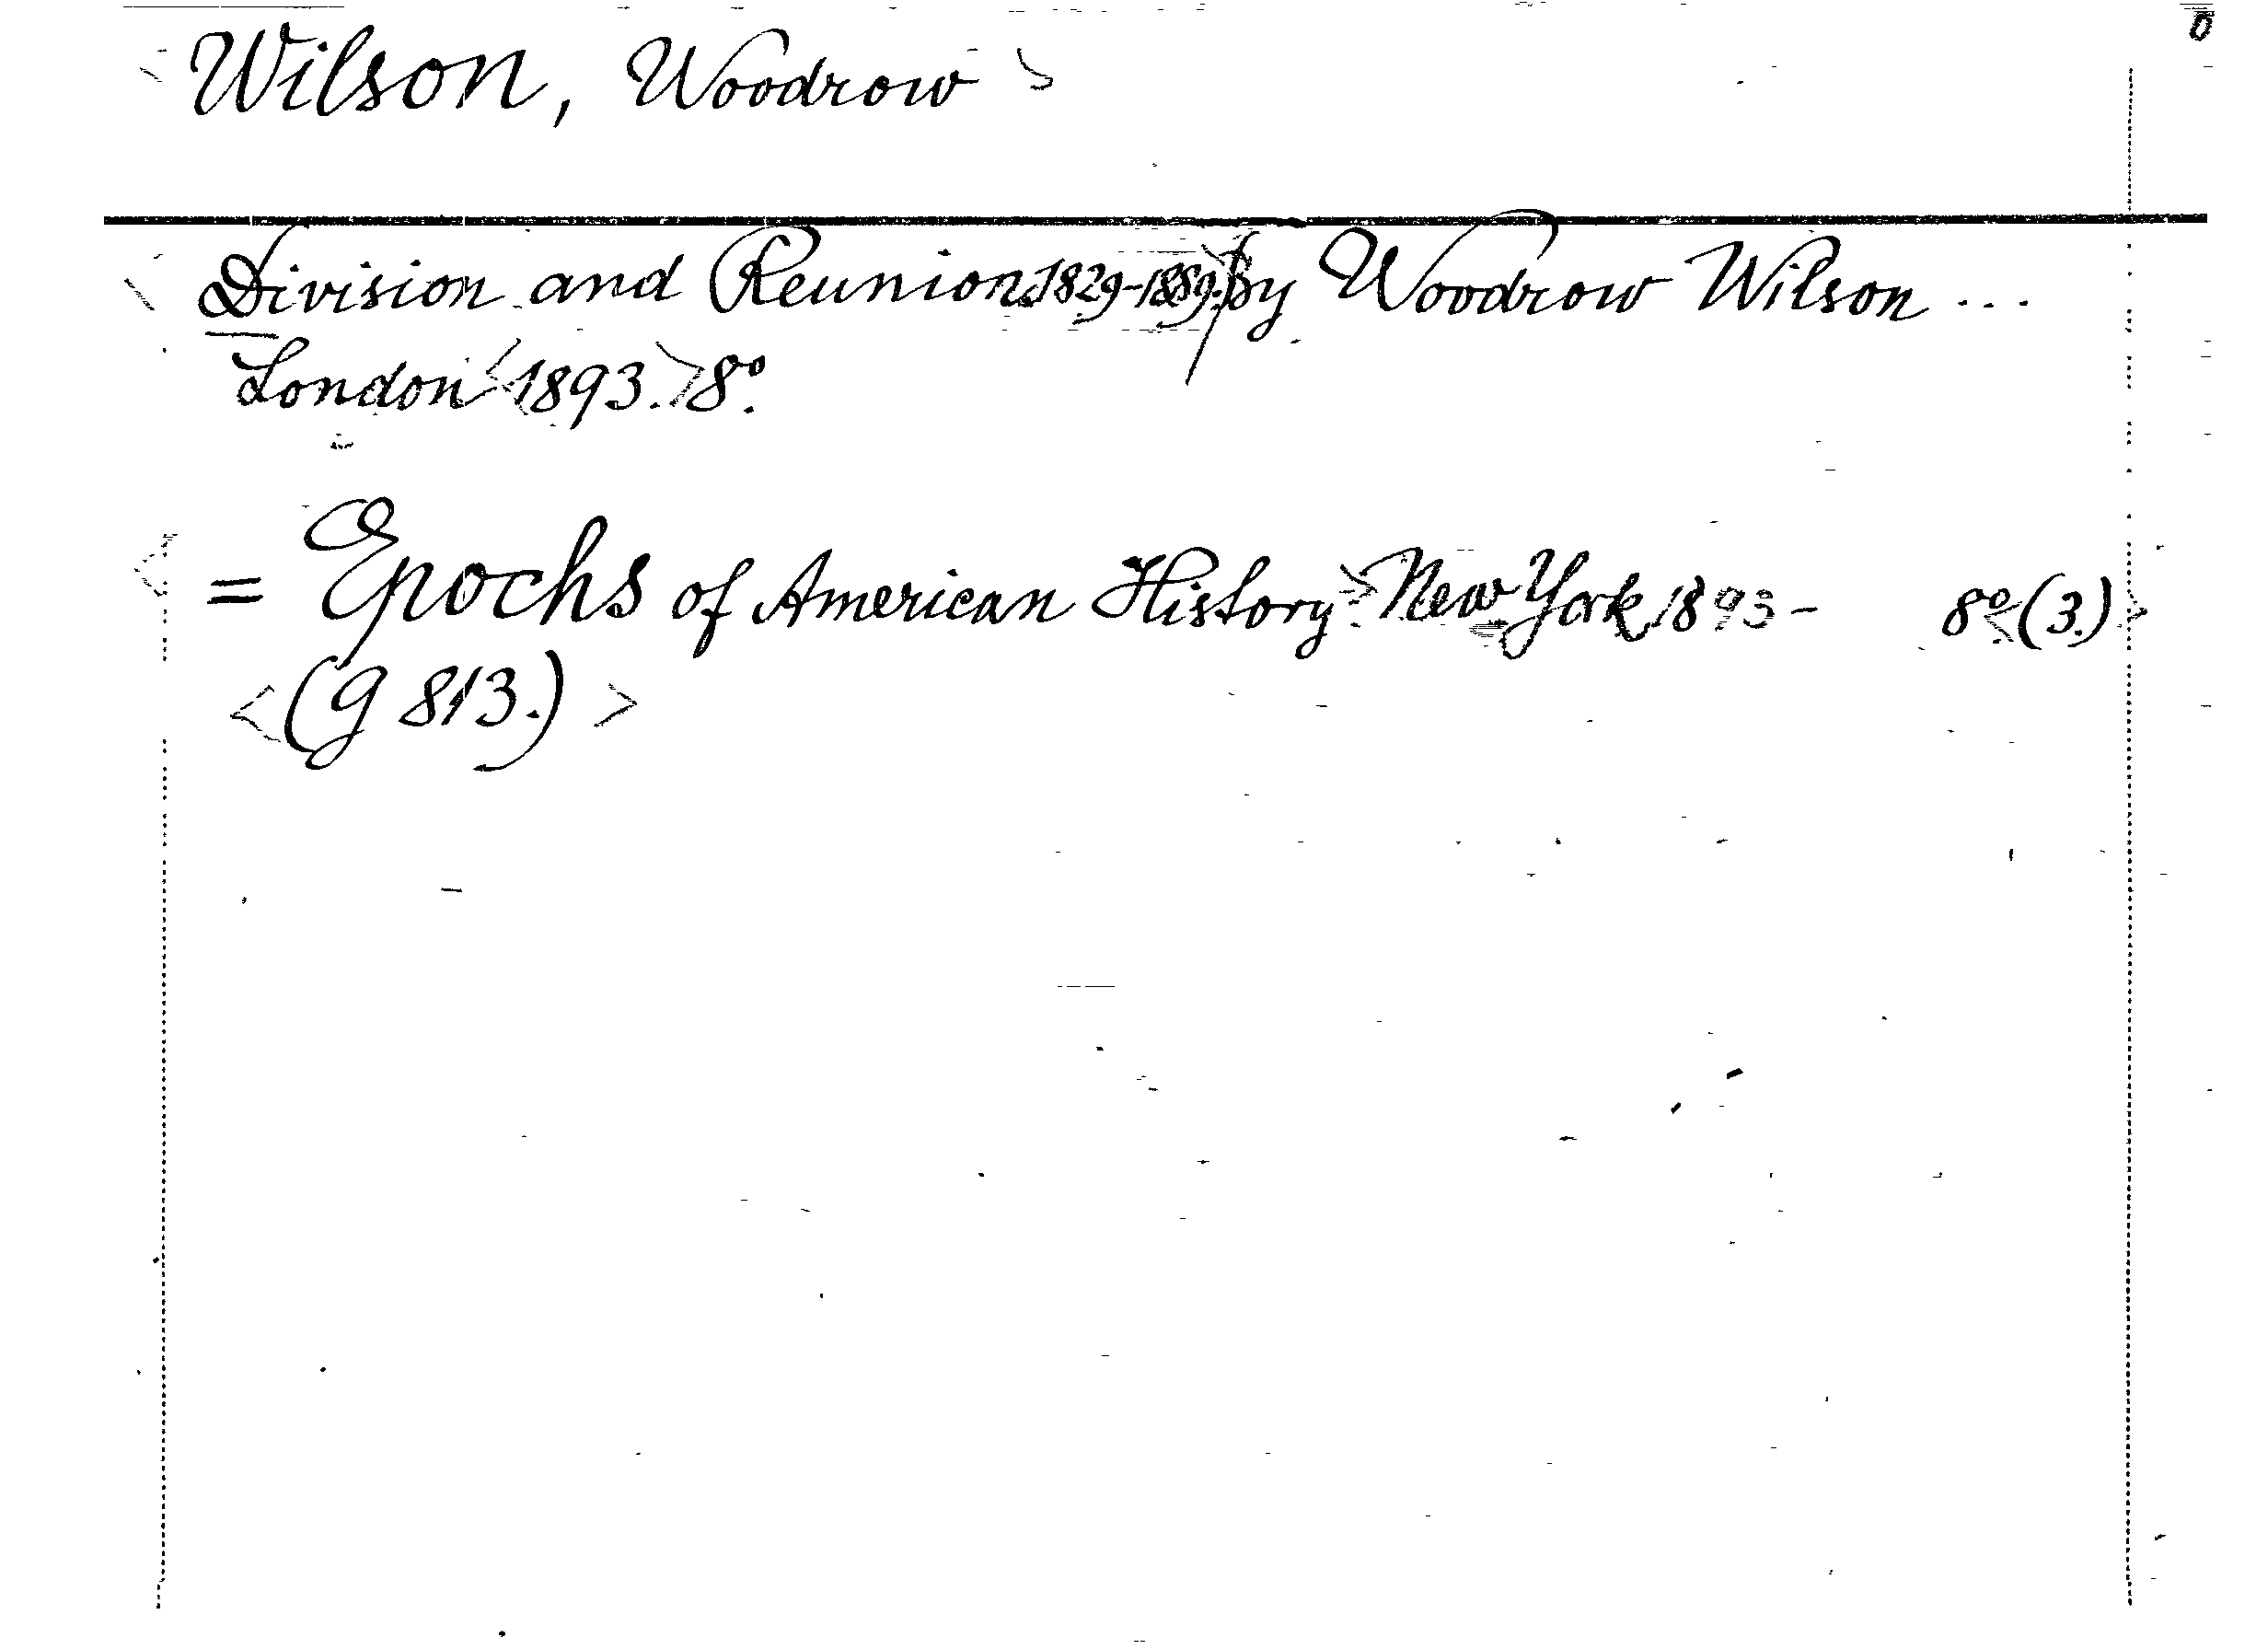 Wilson, Woodrow
Division and Reunion. 1829-1889. by Woodrow Wilson ...
London 1893. 8º.
= Epochs of American History. New York 1893- 8º (3.)
(g 813.)